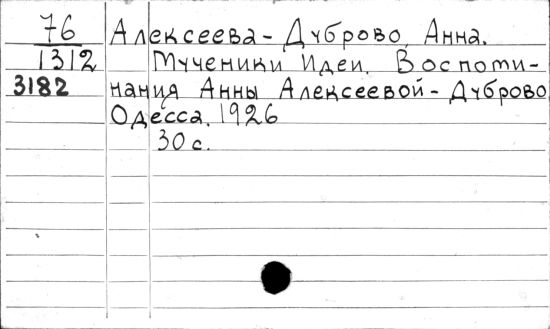 76 Алексеева-Дуброво, Анна.
1312 Мученики Идеи. Воспоми-
3182 нания Анны Алексеевой-Дуброво
Одесса, 1926
30 с.